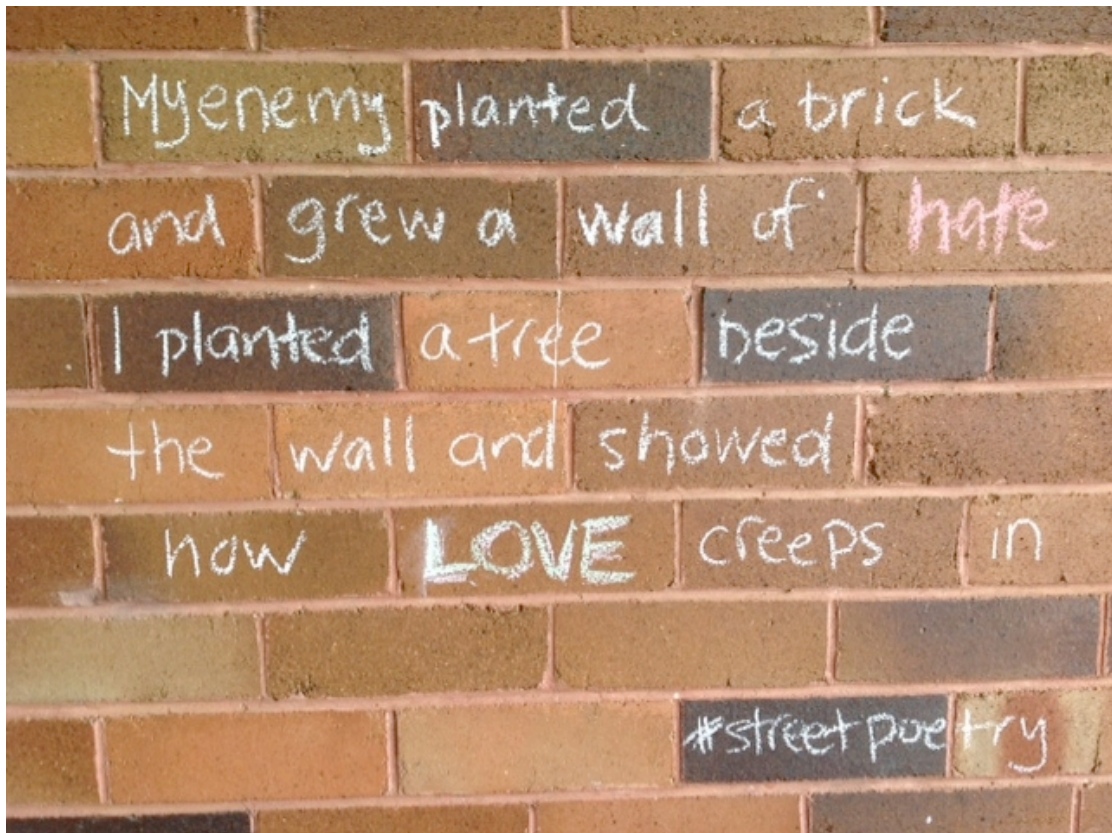 My enemy planted a brick
and grew a wall of hate
I planted a tree beside
the wall and showed
how LOVE creeps in
#streetpoetry